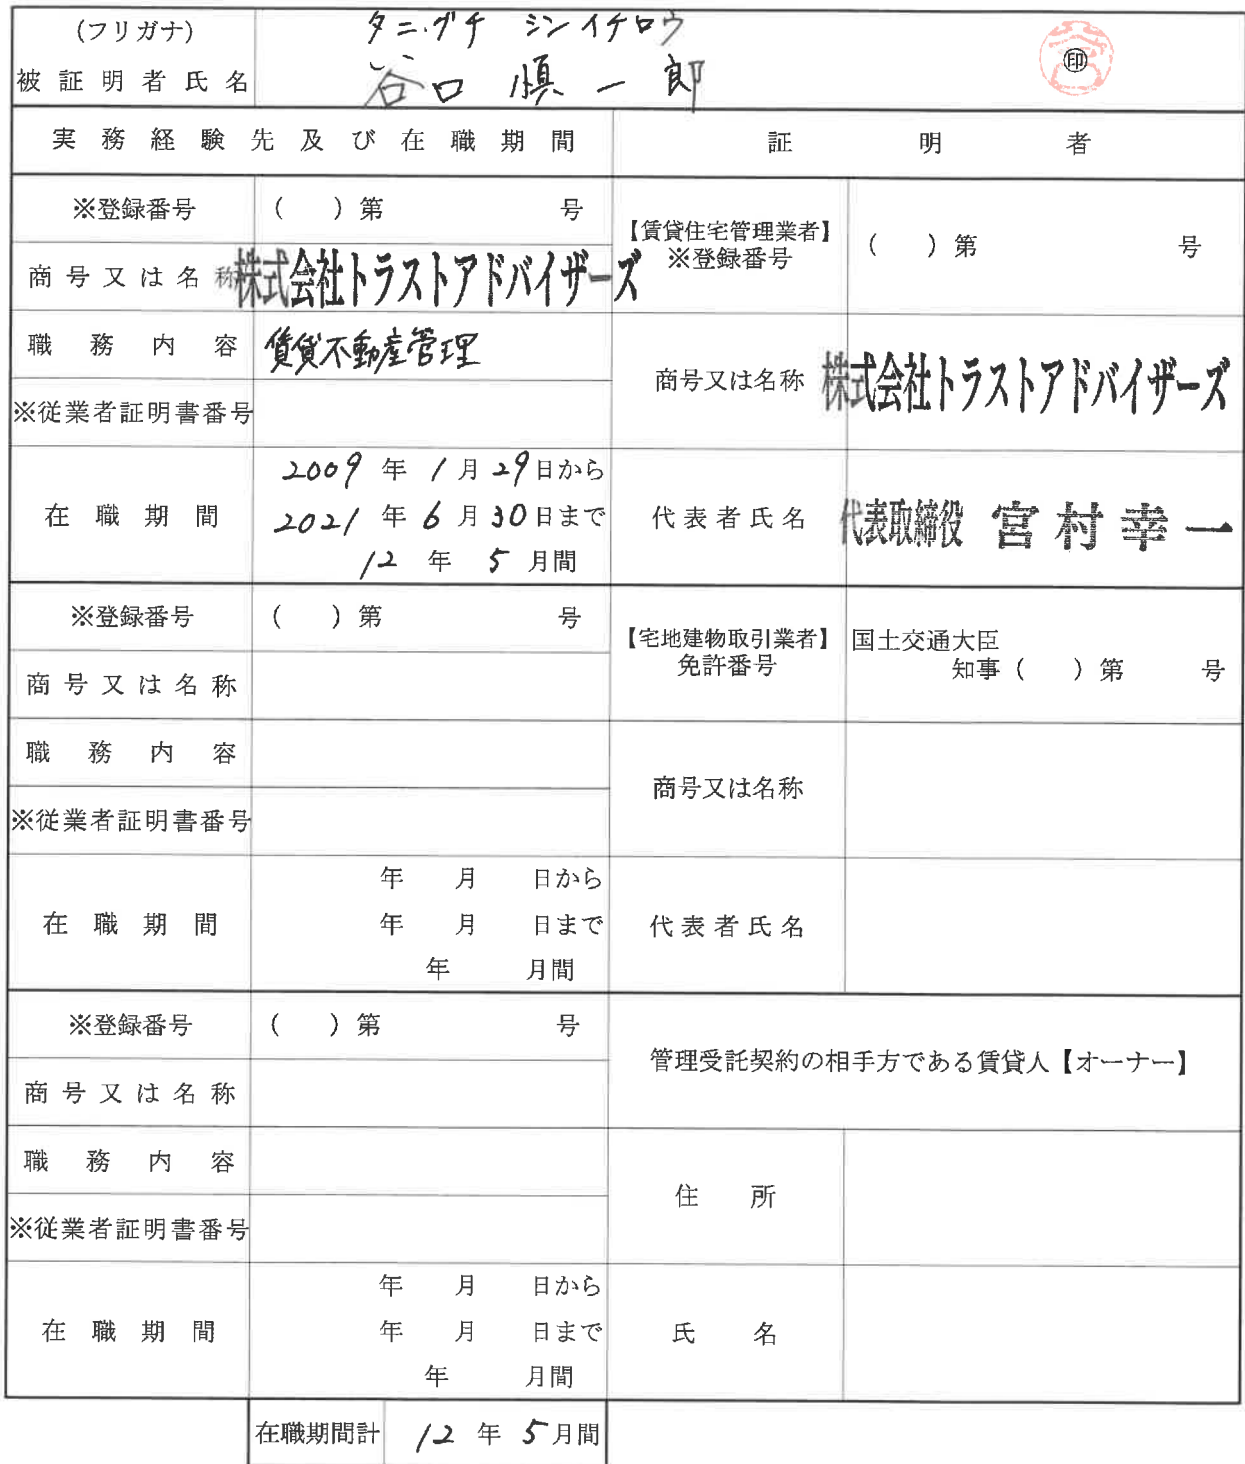 (フリガナ) タニグチ シンイチロウ
被証明者氏名 谷口慎一郎 ㊞
実務経験先及び在職期間 証明者
※登録番号 ( ) 第 号
商号又は名称 株式会社トラストアドバイザーズ
職務内容 賃貸不動産管理
※従業者証明書番号
在職期間 2009 年 1 月 29 日から
2021 年 6 月 30 日まで
12 年 5 月間
【賃貸住宅管理業者】
※登録番号 ( ) 第 号
商号又は名称 株式会社トラストアドバイザーズ
代表者氏名 代表取締役 宮村幸一
※登録番号 ( ) 第 号
商号又は名称
職務内容
※従業者証明書番号
在職期間 年 月 日から
年 月 日まで
年 月間
【宅地建物取引業者】 国土交通大臣
免許番号 知事 ( ) 第 号
商号又は名称
代表者氏名
※登録番号 ( ) 第 号
商号又は名称
職務内容
※従業者証明書番号
在職期間 年 月 日から
年 月 日まで
年 月間
管理受託契約の相手方である賃貸人【オーナー】
住所
氏名
在職期間計 12 年 5 月間